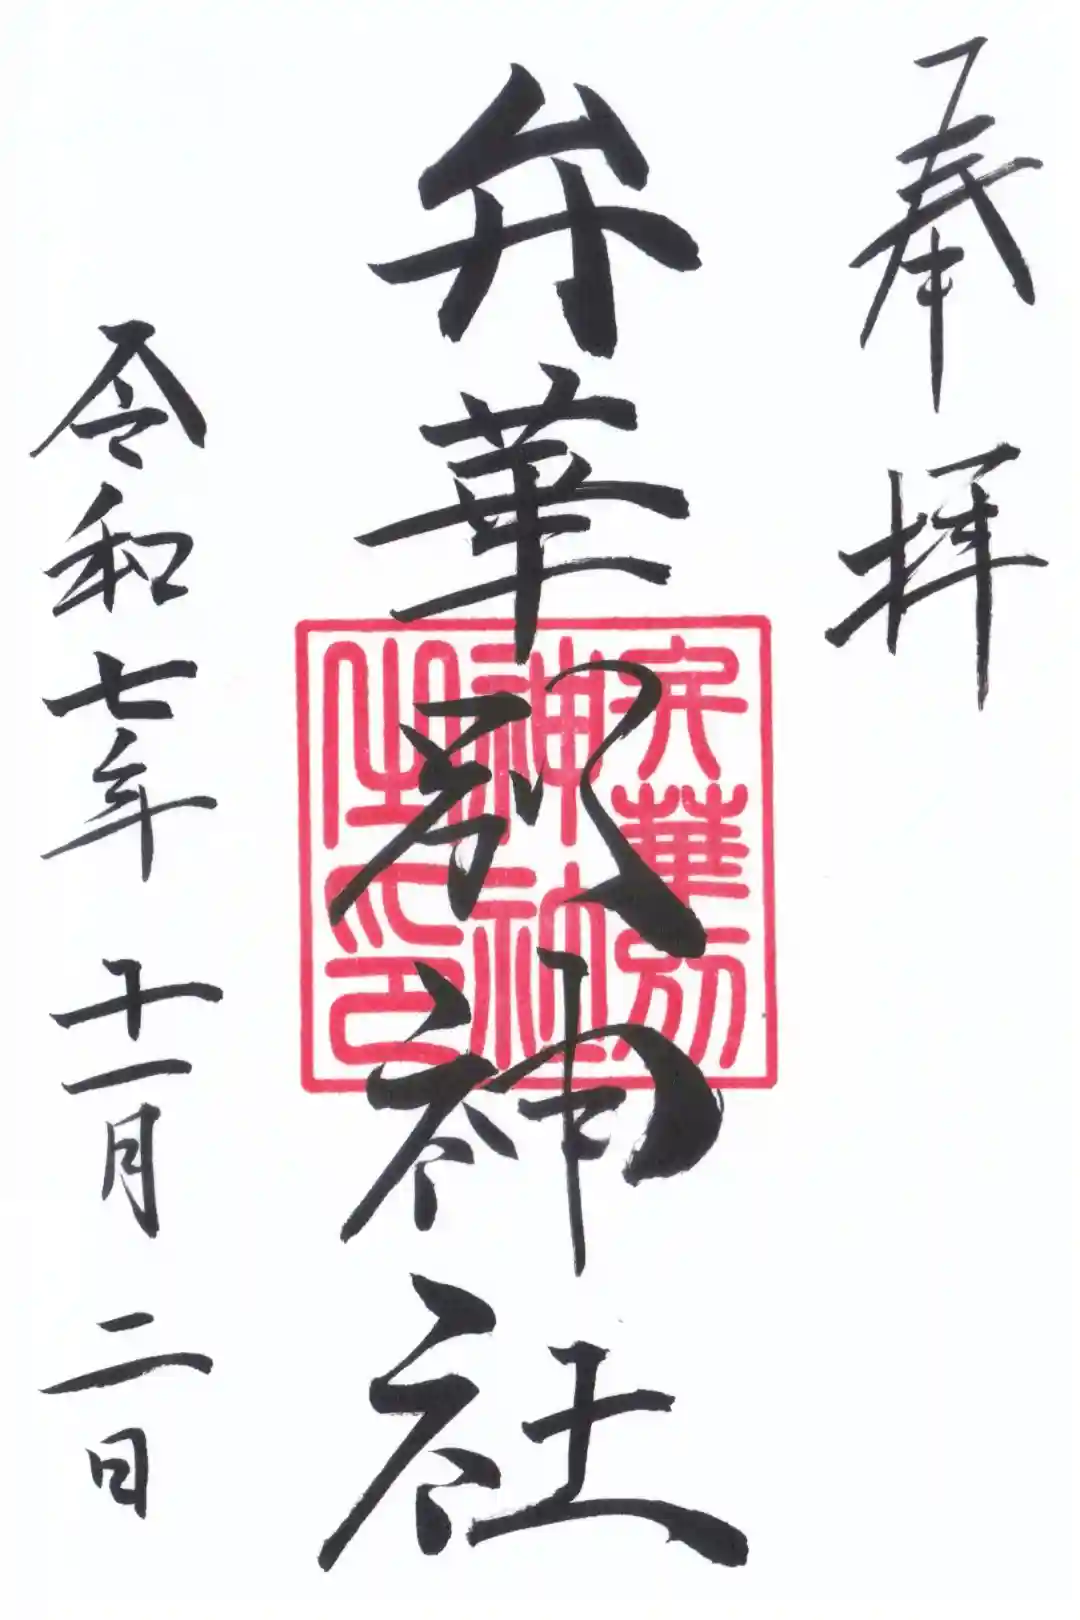 奉拝
弁華別神社
令和七年 十一月 二日
弁華別
神社
之印